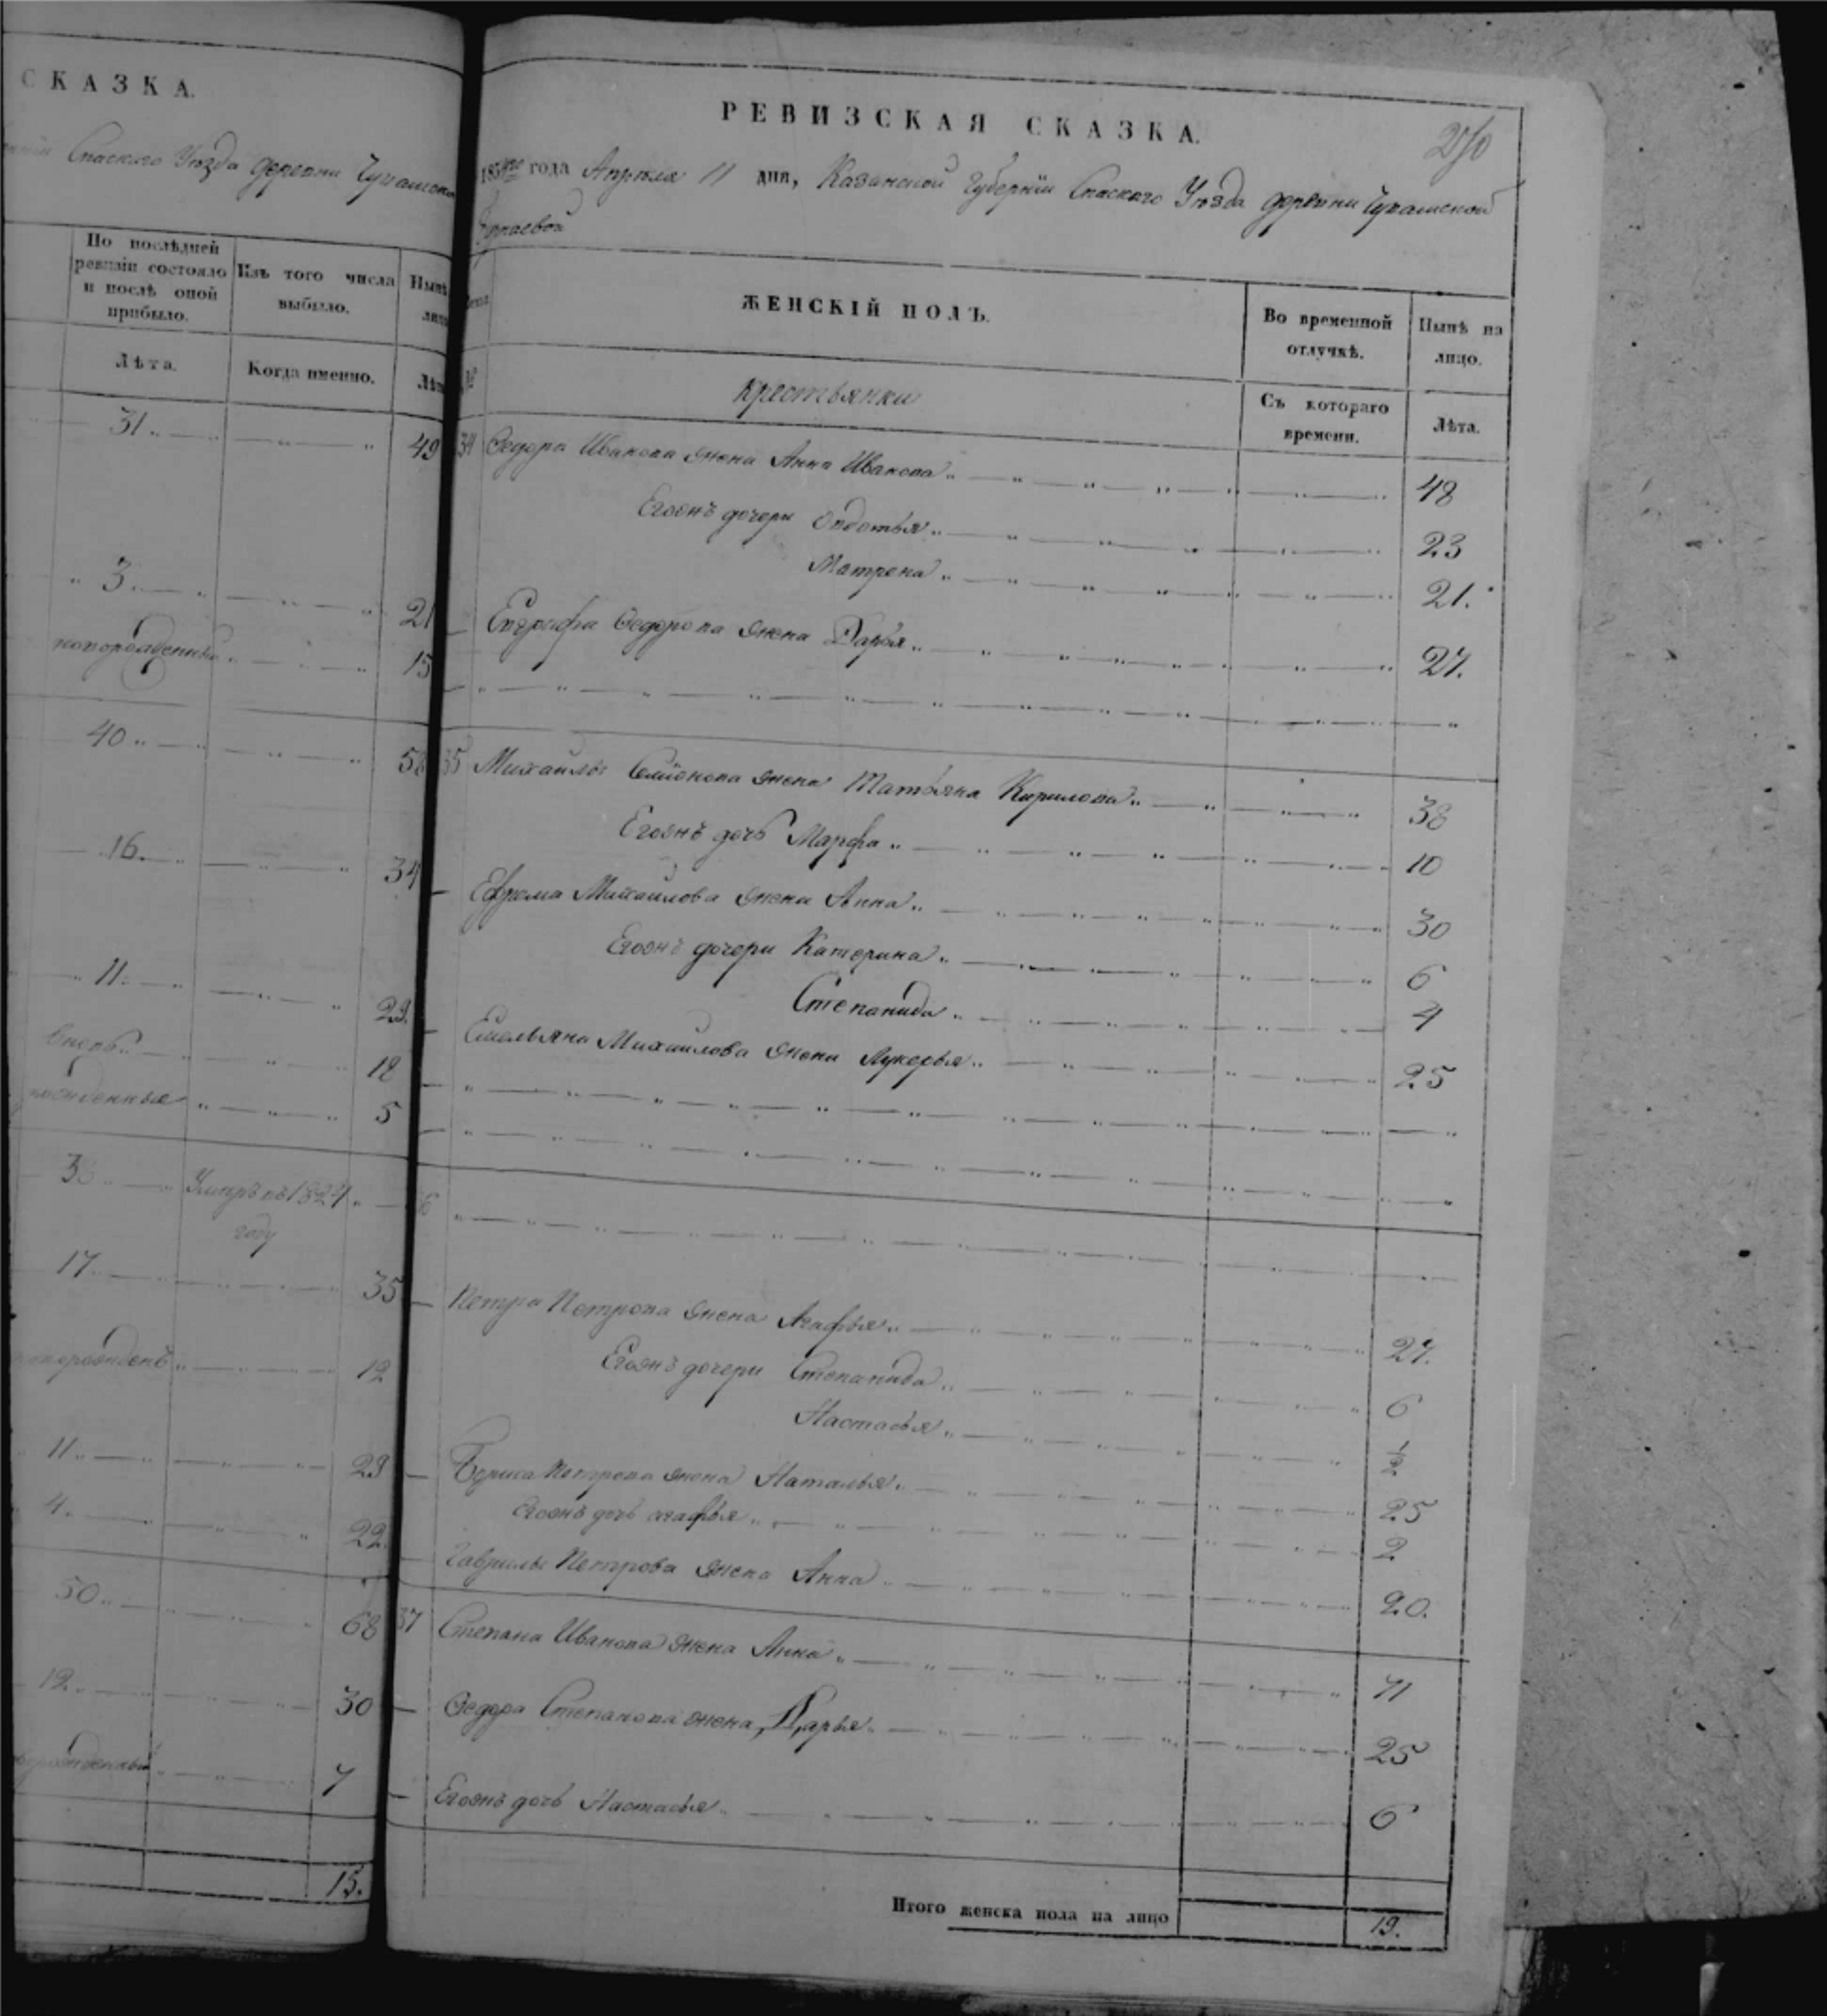 СКАЗКА.
Спаскаго Уѣзда деревни Чувашской
По послѣдней ревизіи состояло и послѣ оной прибыло.
Изъ того числа выбыло.
Нынѣ
Лѣта.
Когда именно.
31
49
3
21
новорожденный
15
40
58
16
34
11
29.
Вновь
18
рожденныя
5
Умеръ въ 1834
году
17
35
новорожденъ
12
11
29
4
22.
50
68
12
30
7
15.
РЕВИЗСКАЯ СКАЗКА.
года Апрѣля 11 дня, Казанской Губерніи Спаскаго Уѣзда деревни Чувашской
ЖЕНСКІЙ ПОЛЪ.
Во временной отлучкѣ.
Нынѣ на лицо.
Крестьянки
Съ котораго времени.
Лѣта.
34 Федора Иванова жена Анна Иванова 48
Егожъ дочери Овдотья 23
Матрена 21.
Евграфа Федорова жена Дарья 27.
35 Михайлы Семіонова жена Татьяна Кирилова 38
Егожъ дочь Марфа 10
Ефрема Михайлова жена Анна 30
Егожъ дочери Катерина 6
Степанида 4
Емельяна Михайлова жена Лукерья 25
Петра Петрова жена Агафья 27.
Егожъ дочери Степанида 6
Настасья ½
Бориса Петрова жена Наталья 25
Егожъ дочь Агафья 2
Гаврилы Петрова жена Анна 20.
37 Степана Иванова жена Анна 71
Федора Степанова жена Дарья 25
Егожъ дочь Настасья 6
Итого женска пола на лицо 19.